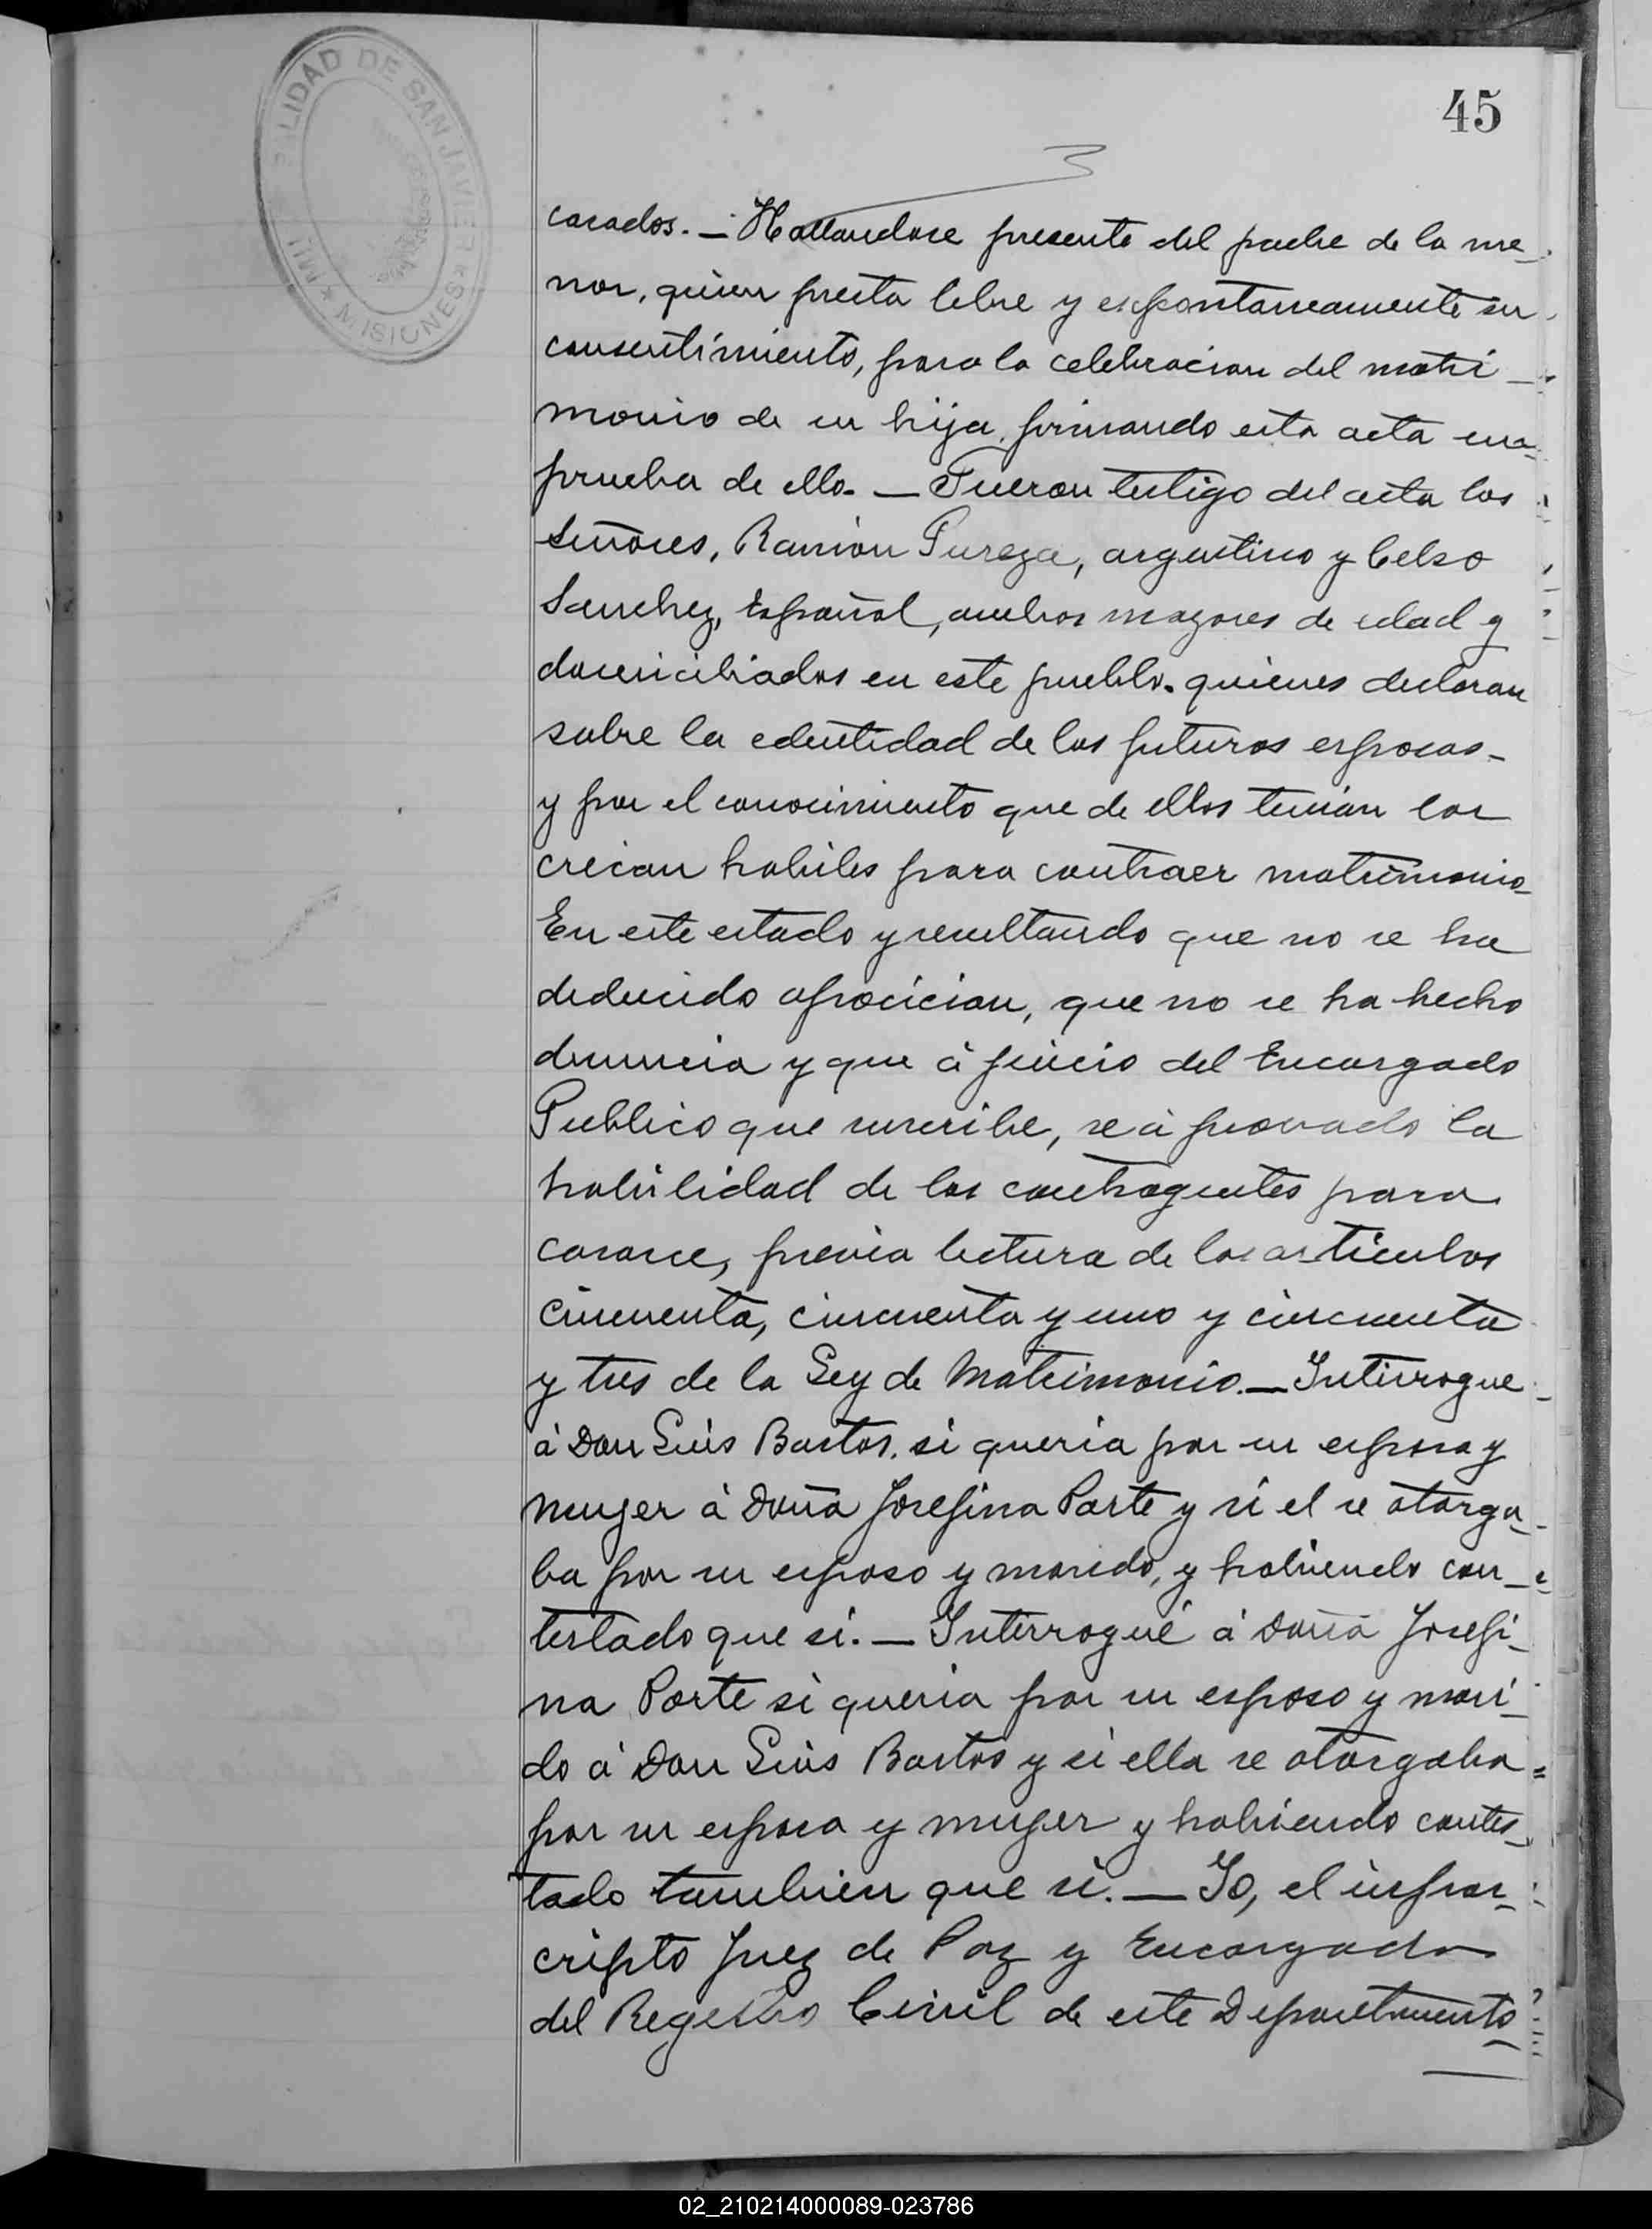 45
ALIDAD DE SAN JAVIER
MISIONES
casados. — Hallandose presente del padre de la me-
nor, quien presta libre y espontaneamente su
consentimiento, para la celebracion del matri-
monio de su hija, firmando esta acta en
prueba de ello. — Fueron testigo del acta los
señores, Ramón Pureza, argentino y Celso
Sanchez, Español, ambos mayores de edad y
domiciliados en este pueblo. quienes declaran
sobre la edentidad de los futuros esposos-
y por el conocimiento que de ellos tenian los
creian habiles para contraer matrimonio-
En este estado y resultando que no se ha
deducido oposicion, que no se ha hecho
denuncia y que á juicio del Encargado
Publico que suscribe, se á provado la
habilidad de los contragentes para
casarse, previa lectura de los articulos
cincuenta, cincuenta y uno y cincuenta
y tres de la Ley de Matrimonio. — Interrogue
á Don Luis Bastos, si queria por su esposa y
muger á Doña Josefina Porte y si el se otorga-
ba por su esposo y marido, y habiendo con-
testado que si. — Interrogué á Doña Josefi-
na Porte si queria por su esposo y mari-
do á Don Luis Bastos y si ella se otorgaba
por su esposa y muger y habiendo contes-
tado tambien que si. — Yo, el infras-
cripto Juez de Paz y Encargado
del Registro Civil de este Departamento
02_210214000089-023786